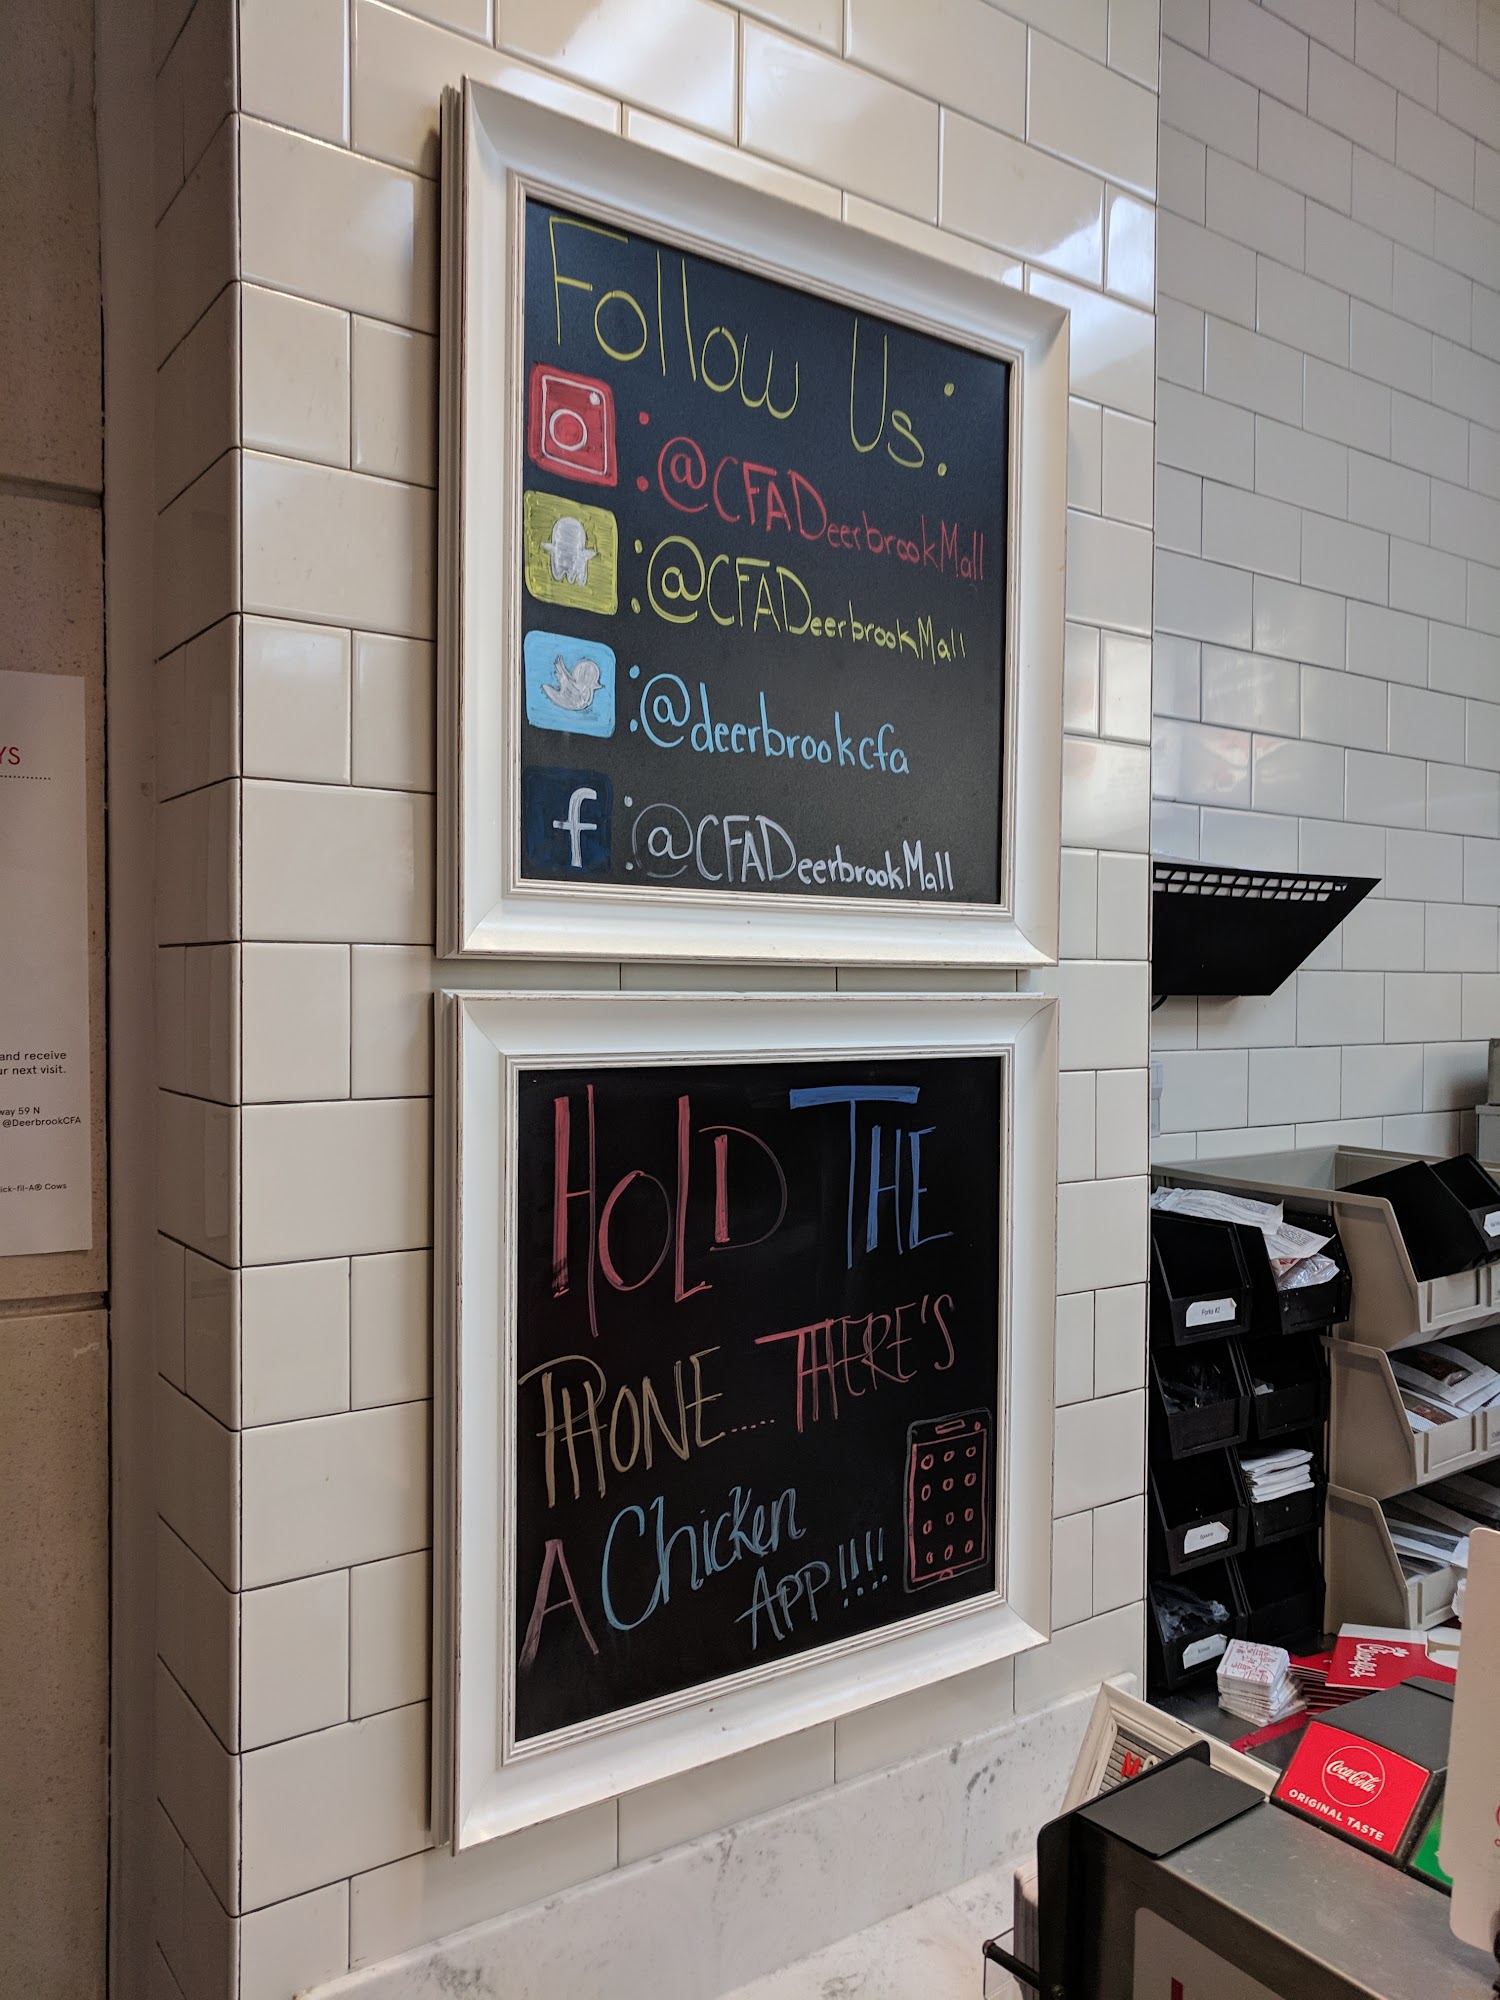 Follow Us:
: @CFADeerbrookMall
: @CFADeerbrookMall
: @deerbrookcfa
f : @CFADeerbrookMall
HOLD THE
PHONE..... THERE'S
A Chicken
APP!!!!
YS
and receive
ur next visit.
way 59 N
@DeerbrookCFA
ick-fil-A® Cows
Forks #2
Chick-fil-A
Coca-Cola
ORIGINAL TASTE